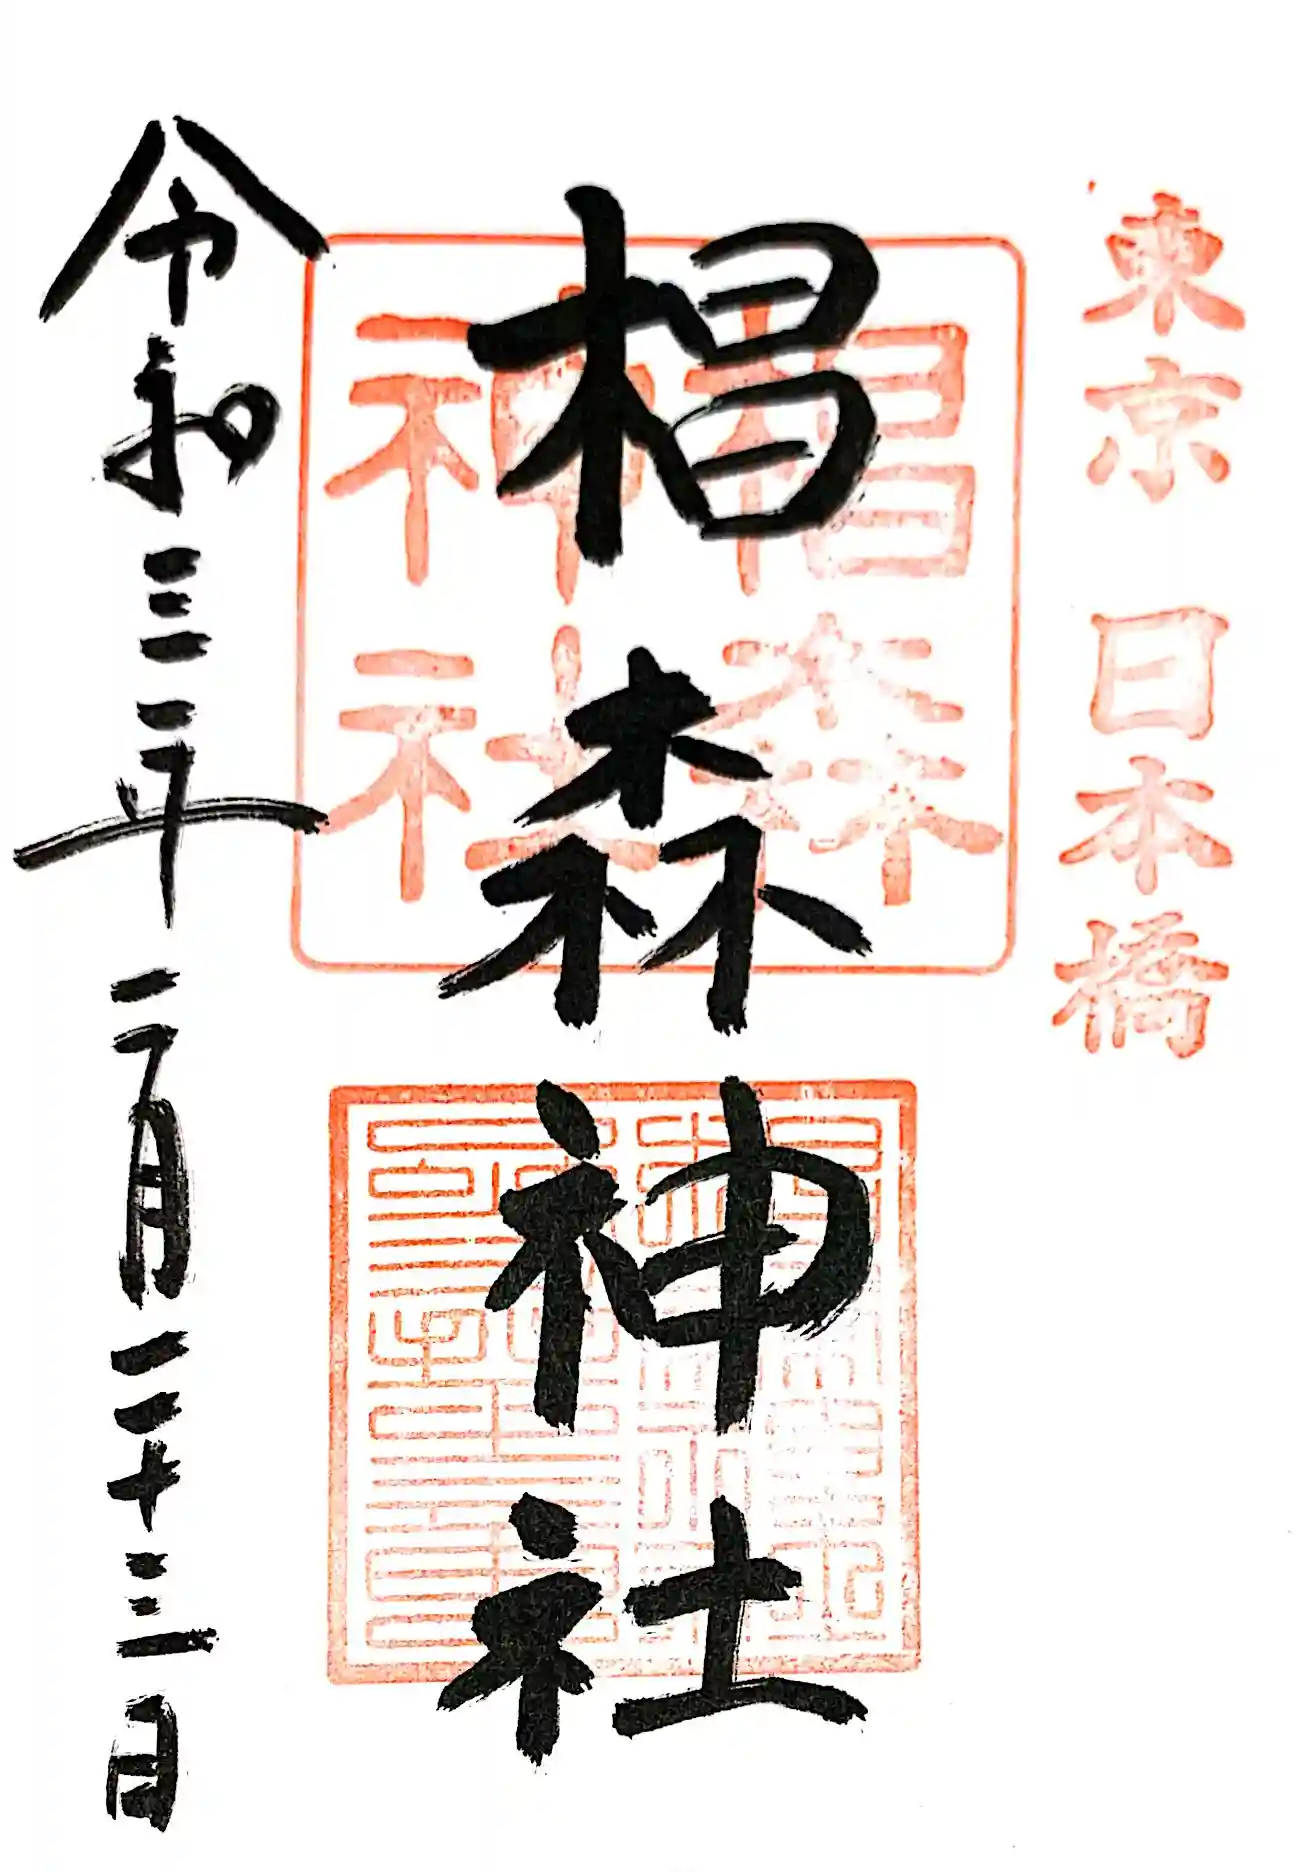 東京 日本橋
椙森神社
椙森
神社
令和三年二月二十三日